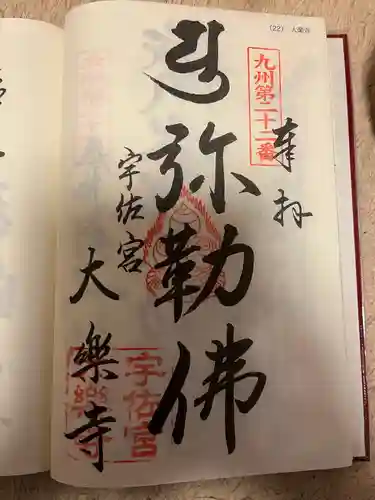 (22) 大樂寺
九州第二十二番
奉拝
弥勒佛
宇佐宮
大樂寺
宇佐宮